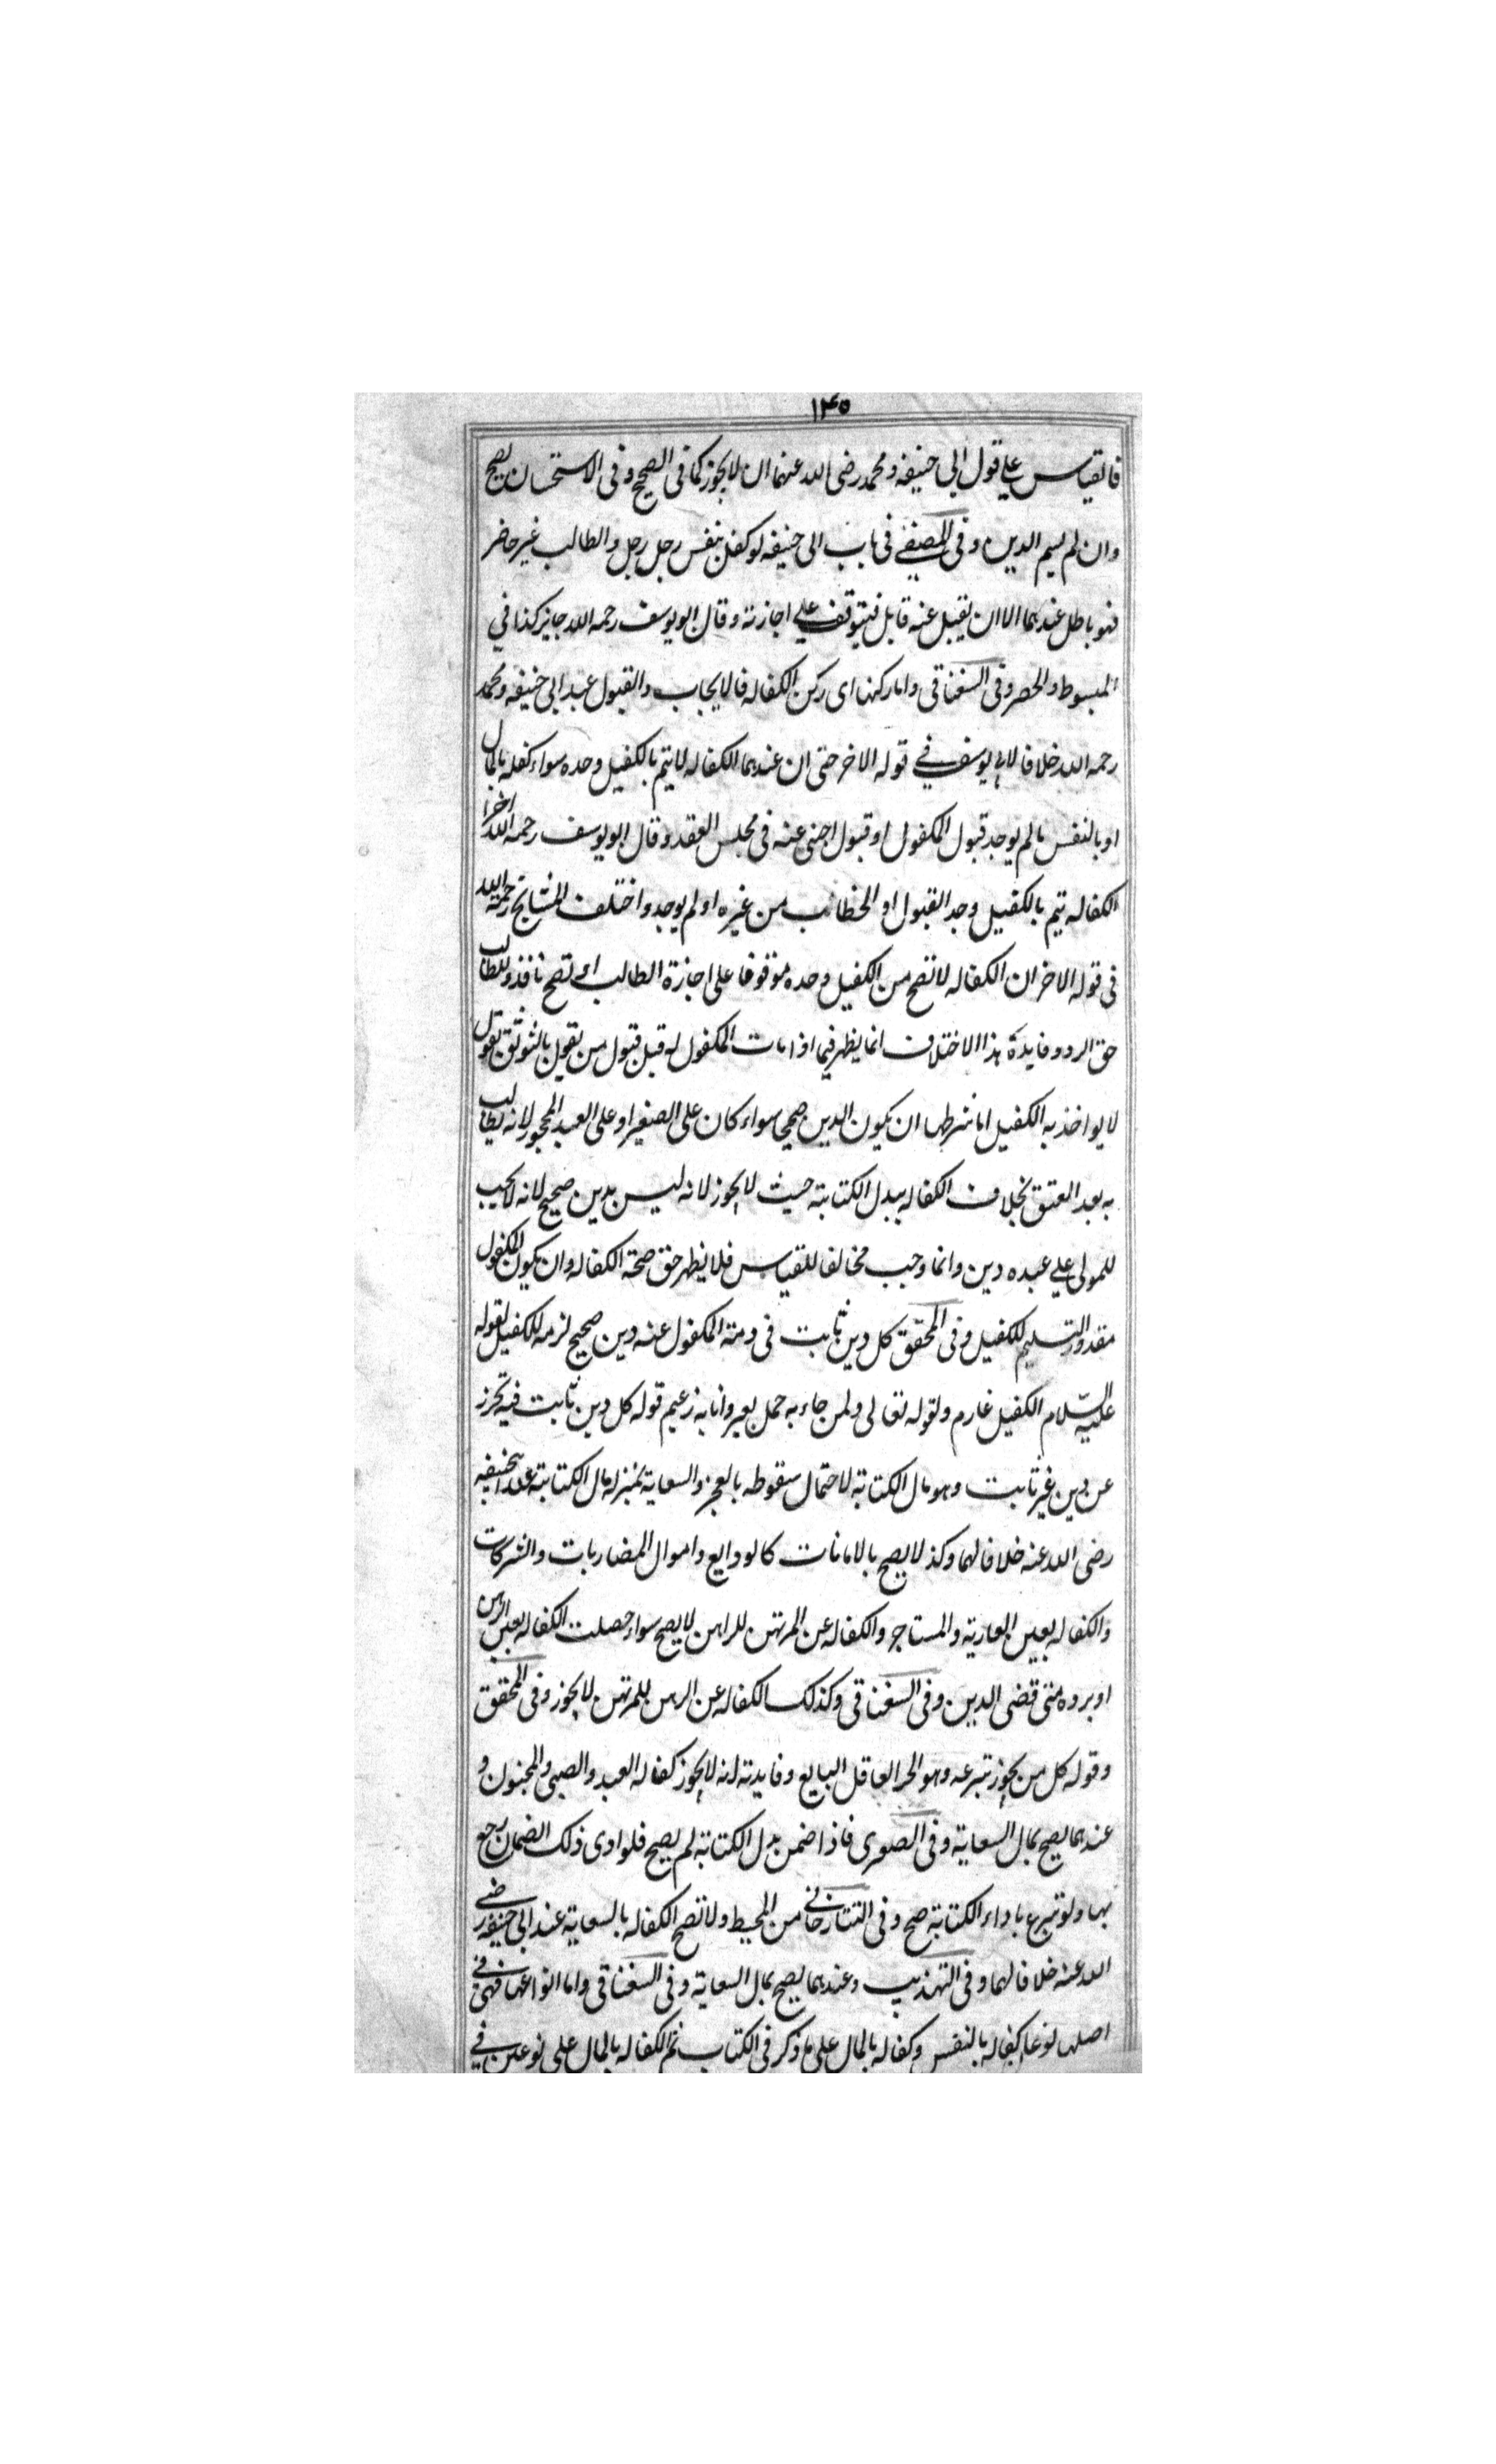 ١٤٥
فالقياس على قول ابي حنيفه ومحمد رضى الله عنهما ان لا يجوز كما في الصحيح وفى الاستحسان يصح
وان لم يسم الدين وفى المصفى فى باب ابى حنيفه لو كفل بنفس رجل رجل والطالب غير حاضر
فهو باطل عندهما الا ان يقبل عنه قابل فيتوقف على اجازته وقال ابو يوسف رحمه الله جايز كذا في
المبسوط والحصر وفى السغناقى واما ركنها اى ركن الكفاله فالايجاب والقبول عند ابى حنيفه ومحمد
رحمه الله خلافا لابي يوسف في قوله الاخر حتى ان عندهما الكفاله لا يتم بالكفيل وحده سواء كفله بالمال
او بالنفس مالم يوجد قبول المكفول او قبول اجنى عنه فى مجلس العقد وقال ابو يوسف رحمه الله اخرا
الكفاله تيم بالكفيل وجد القبول او الخطاب من غيره او لم يوجد واختلف المشايخ رحمه الله
فى قوله الاخر ان الكفاله لا تصح من الكفيل وحده موقوفا على اجازة الطالب او تصح نافذ وللطالب
حق الرد وفايدة هذا الاختلاف انما يظهر فيما اذا مات المكفول له قبل قبول من يقول بالتوثق يقول
لا يواخذ به الكفيل اما شرطها ان يكون الدين صحيحا سواء كان على الصغير او على العبد المحجور لانه يطالب
به بعد العتق بخلاف الكفاله ببدل الكتابته حيث لا يجوز لانه ليس بدين صحيح لانه لا يجب
للمولى على عبده دين وانما وجب مخالفا للقياس فلا يظهر حق صحة الكفاله وان يكون المكفول
مقدور التسليم للكفيل وفى المحقق كل دين ثابت فى ذمته المكفول عنه دين صحيح لزمه للكفيل لقوله
عليه السلام الكفيل غارم ولقوله تعالى ولمن جاء به حمل بعير وانا به زعيم قوله كل دين ثابت فيه تحرز
عن دين غير ثابت وهو مال الكتابة لاحتمال سقوطه بالعجز والسعاية بمنزله مال الكتابته عند ابيحنيفه
رضى الله عنه خلافا لهما وكذ لا يصح بالامانات كالودايع واموال المضاربات والشركات
والكفاله بعين العاريته والمستاجر والكفاله عن المرتهن للراهن لا يصح سواء حصلت الكفاله بعين الرهن
او برده متى قضى الدين وفى السغناقى وكذلك الكفاله عن الرهن للمرتهن لا يجوز وفى المحقق
وقوله كل من يجوز تبرعه وهو الحر العاقل البالغ وفايدته انه لا يجوز كفاله العبد والصبى والمجنون و
عندهما يصح بمال السعاية وفى الصغرى فاذا ضمن بدل الكتابة لم يصح فلو ادى ذلك الضمان رجع
بها ولو تبرع باداء الكتابة صح وفى التتارخاني من المحيط ولا تصح الكفاله بالسعاية عند ابى حنيفه رضي
الله عنه خلافا لهما وفى التهذيب وعندهما يصح بمال السعاية وفى السغناقى واما انواعها فهى في
اصلها نوعان كفاله بالنفس وكفاله بالمال على ما ذكر فى الكتاب ثم الكفاله بالمال على نوعين في